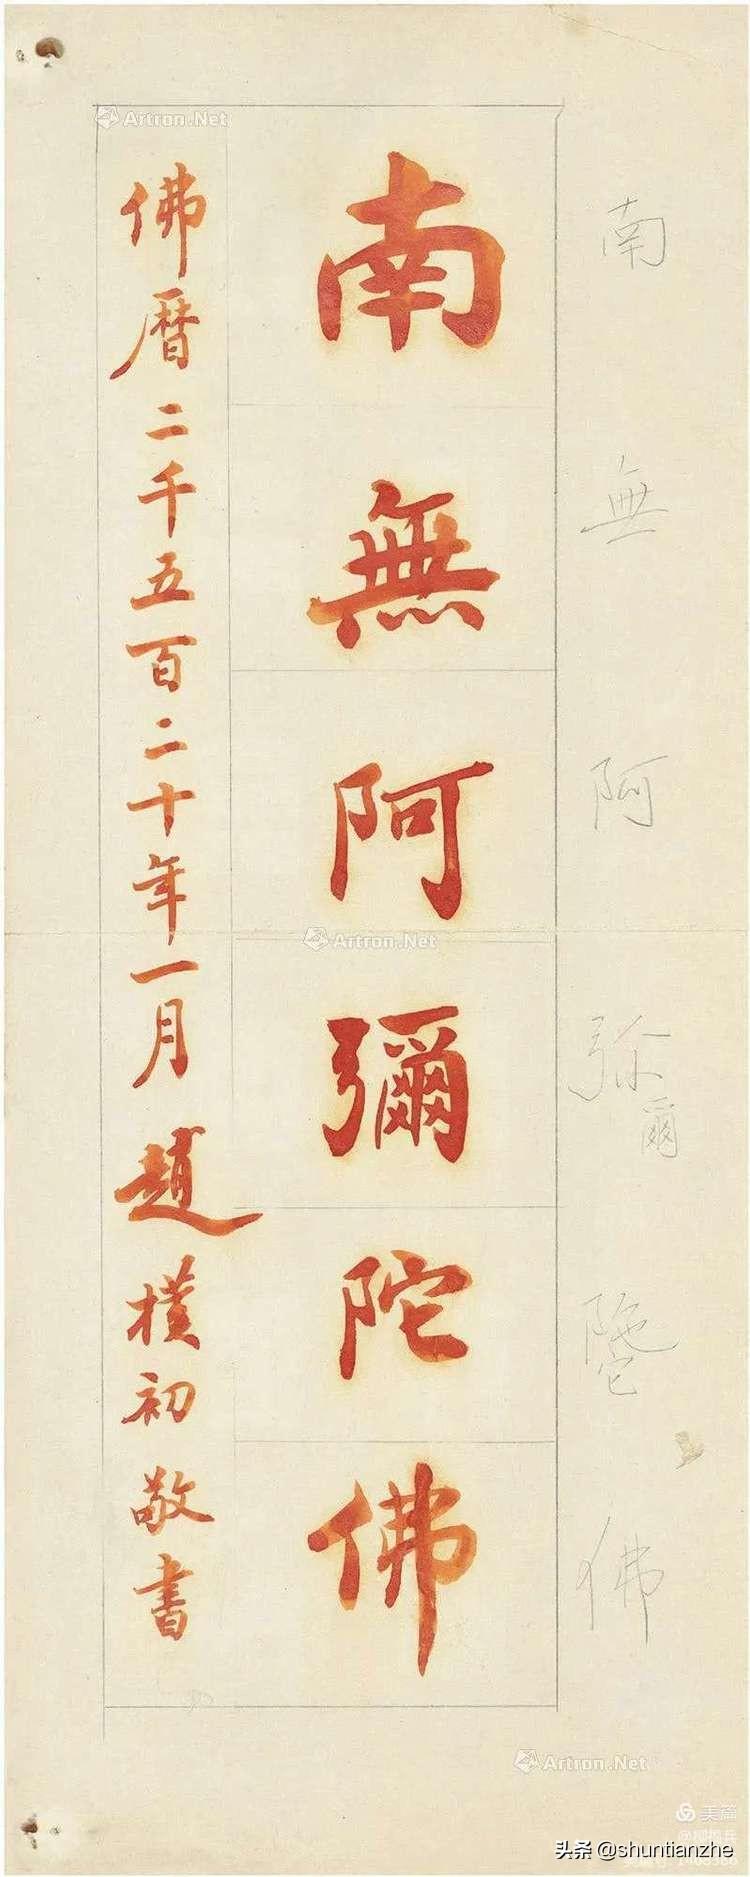 南無阿彌陀佛
佛曆二千五百二十年一月 趙樸初敬書
南無阿弥爾陀它佛
Artron.Net
Artron.Net
Artron.Net
美篇
头条 @shuntianzhe